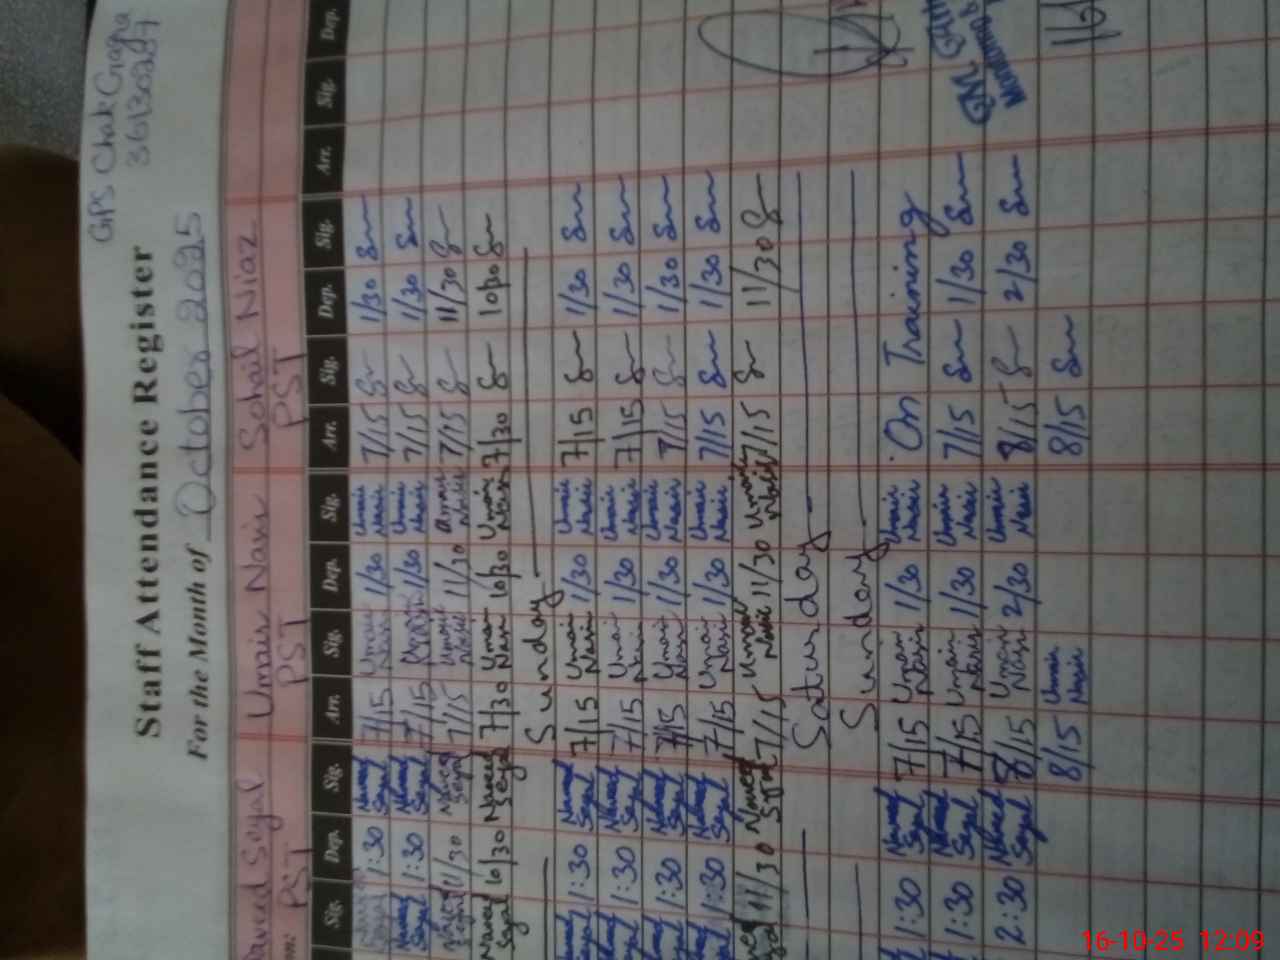 GPS Chak Gragra
36130287
Staff Attendance Register
For the Month of October 2025
Naveed Seyal Umair Nasir Sohail Niaz
PST PST PST
Sig. Dep. Sig. Arr. Sig. Dep. Sig. Arr. Sig. Dep. Sig. Arr. Sig. Dep.
1:30 Naveed Seyal 7/15 Umair Nasir 1/30 Umair Nasir 7/15 1/30
Naveed Seyal 1:30 Naveed Seyal 7/15 1/30 Umair Nasir 7/15 1/30
Naveed Seyal 11/30 Naveed Seyal 7/15 Umair Nasir 11/30 Umair Nasir 7/15 11/30
Naveed Seyal 10/30 Naveed Seyal 7/30 Umair Nasir 10/30 Umair Nasir 7/30 10/30
Sunday
Naveed Seyal 1:30 Naveed Seyal 7/15 Umair Nasir 1/30 Umair Nasir 7/15 1/30
Naveed Seyal 1:30 Naveed Seyal 7/15 Umair Nasir 1/30 Umair Nasir 7/15 1/30
Naveed Seyal 1:30 Naveed Seyal 7/15 Umair Nasir 1/30 Umair Nasir 7/15 1/30
Naveed Seyal 1:30 Naveed Seyal 7/15 Umair Nasir 1/30 Umair Nasir 7/15 1/30
11/30 Naveed Seyal 7/15 Umair Nasir 11/30 Umair Nasir 7/15 11/30
Saturday
Sunday
1:30 Naveed Seyal 7/15 Umair Nasir 1/30 Umair Nasir On Training
1:30 Naveed Seyal 7/15 Umair Nasir 1/30 Umair Nasir 7/15 1/30
2:30 Naveed Seyal 8/15 Umair Nasir 2/30 Umair Nasir 8/15 2/30
8/15 Umair Nasir 8/15
16-10-25 12:09